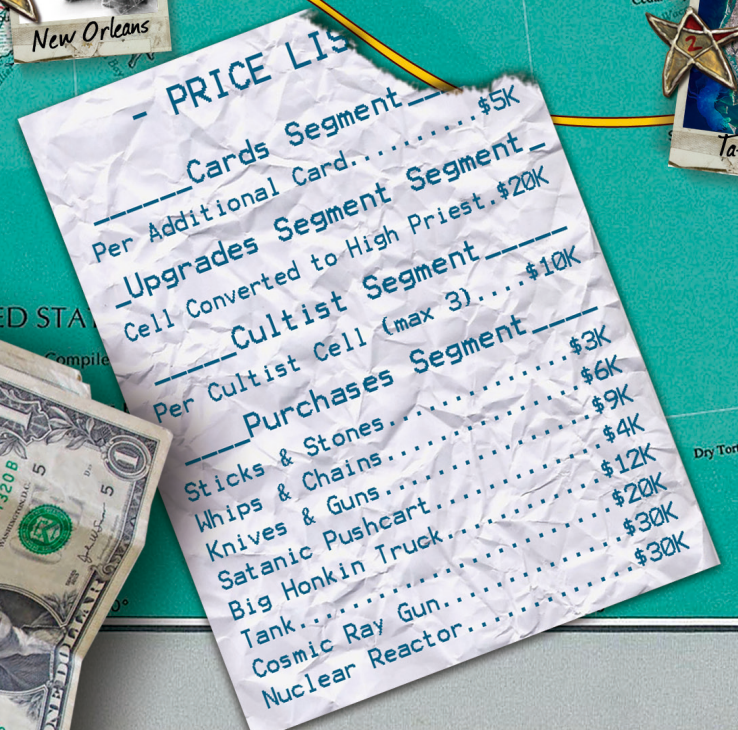 New Orleans
- PRICE LIS
______Cards Segment__
Per Additional Card..........$5K
_Upgrades Segment Segment_
Cell Converted to High Priest.$20K
_____Cultist Segment_____
Per Cultist Cell (max 3)....$10K
____Purchases Segment____
Sticks & Stones..............$3K
Whips & Chains...............$6K
Knives & Guns................$9K
Satanic Pushcart.............$4K
Big Honkin Truck............$12K
Tank........................$20K
Cosmic Ray Gun..............$30K
Nuclear Reactor.............$30K
2
Ta
ED STA
Compile
Dry Tort
320B
WASHINGTON, D.C.
5
5
1
1